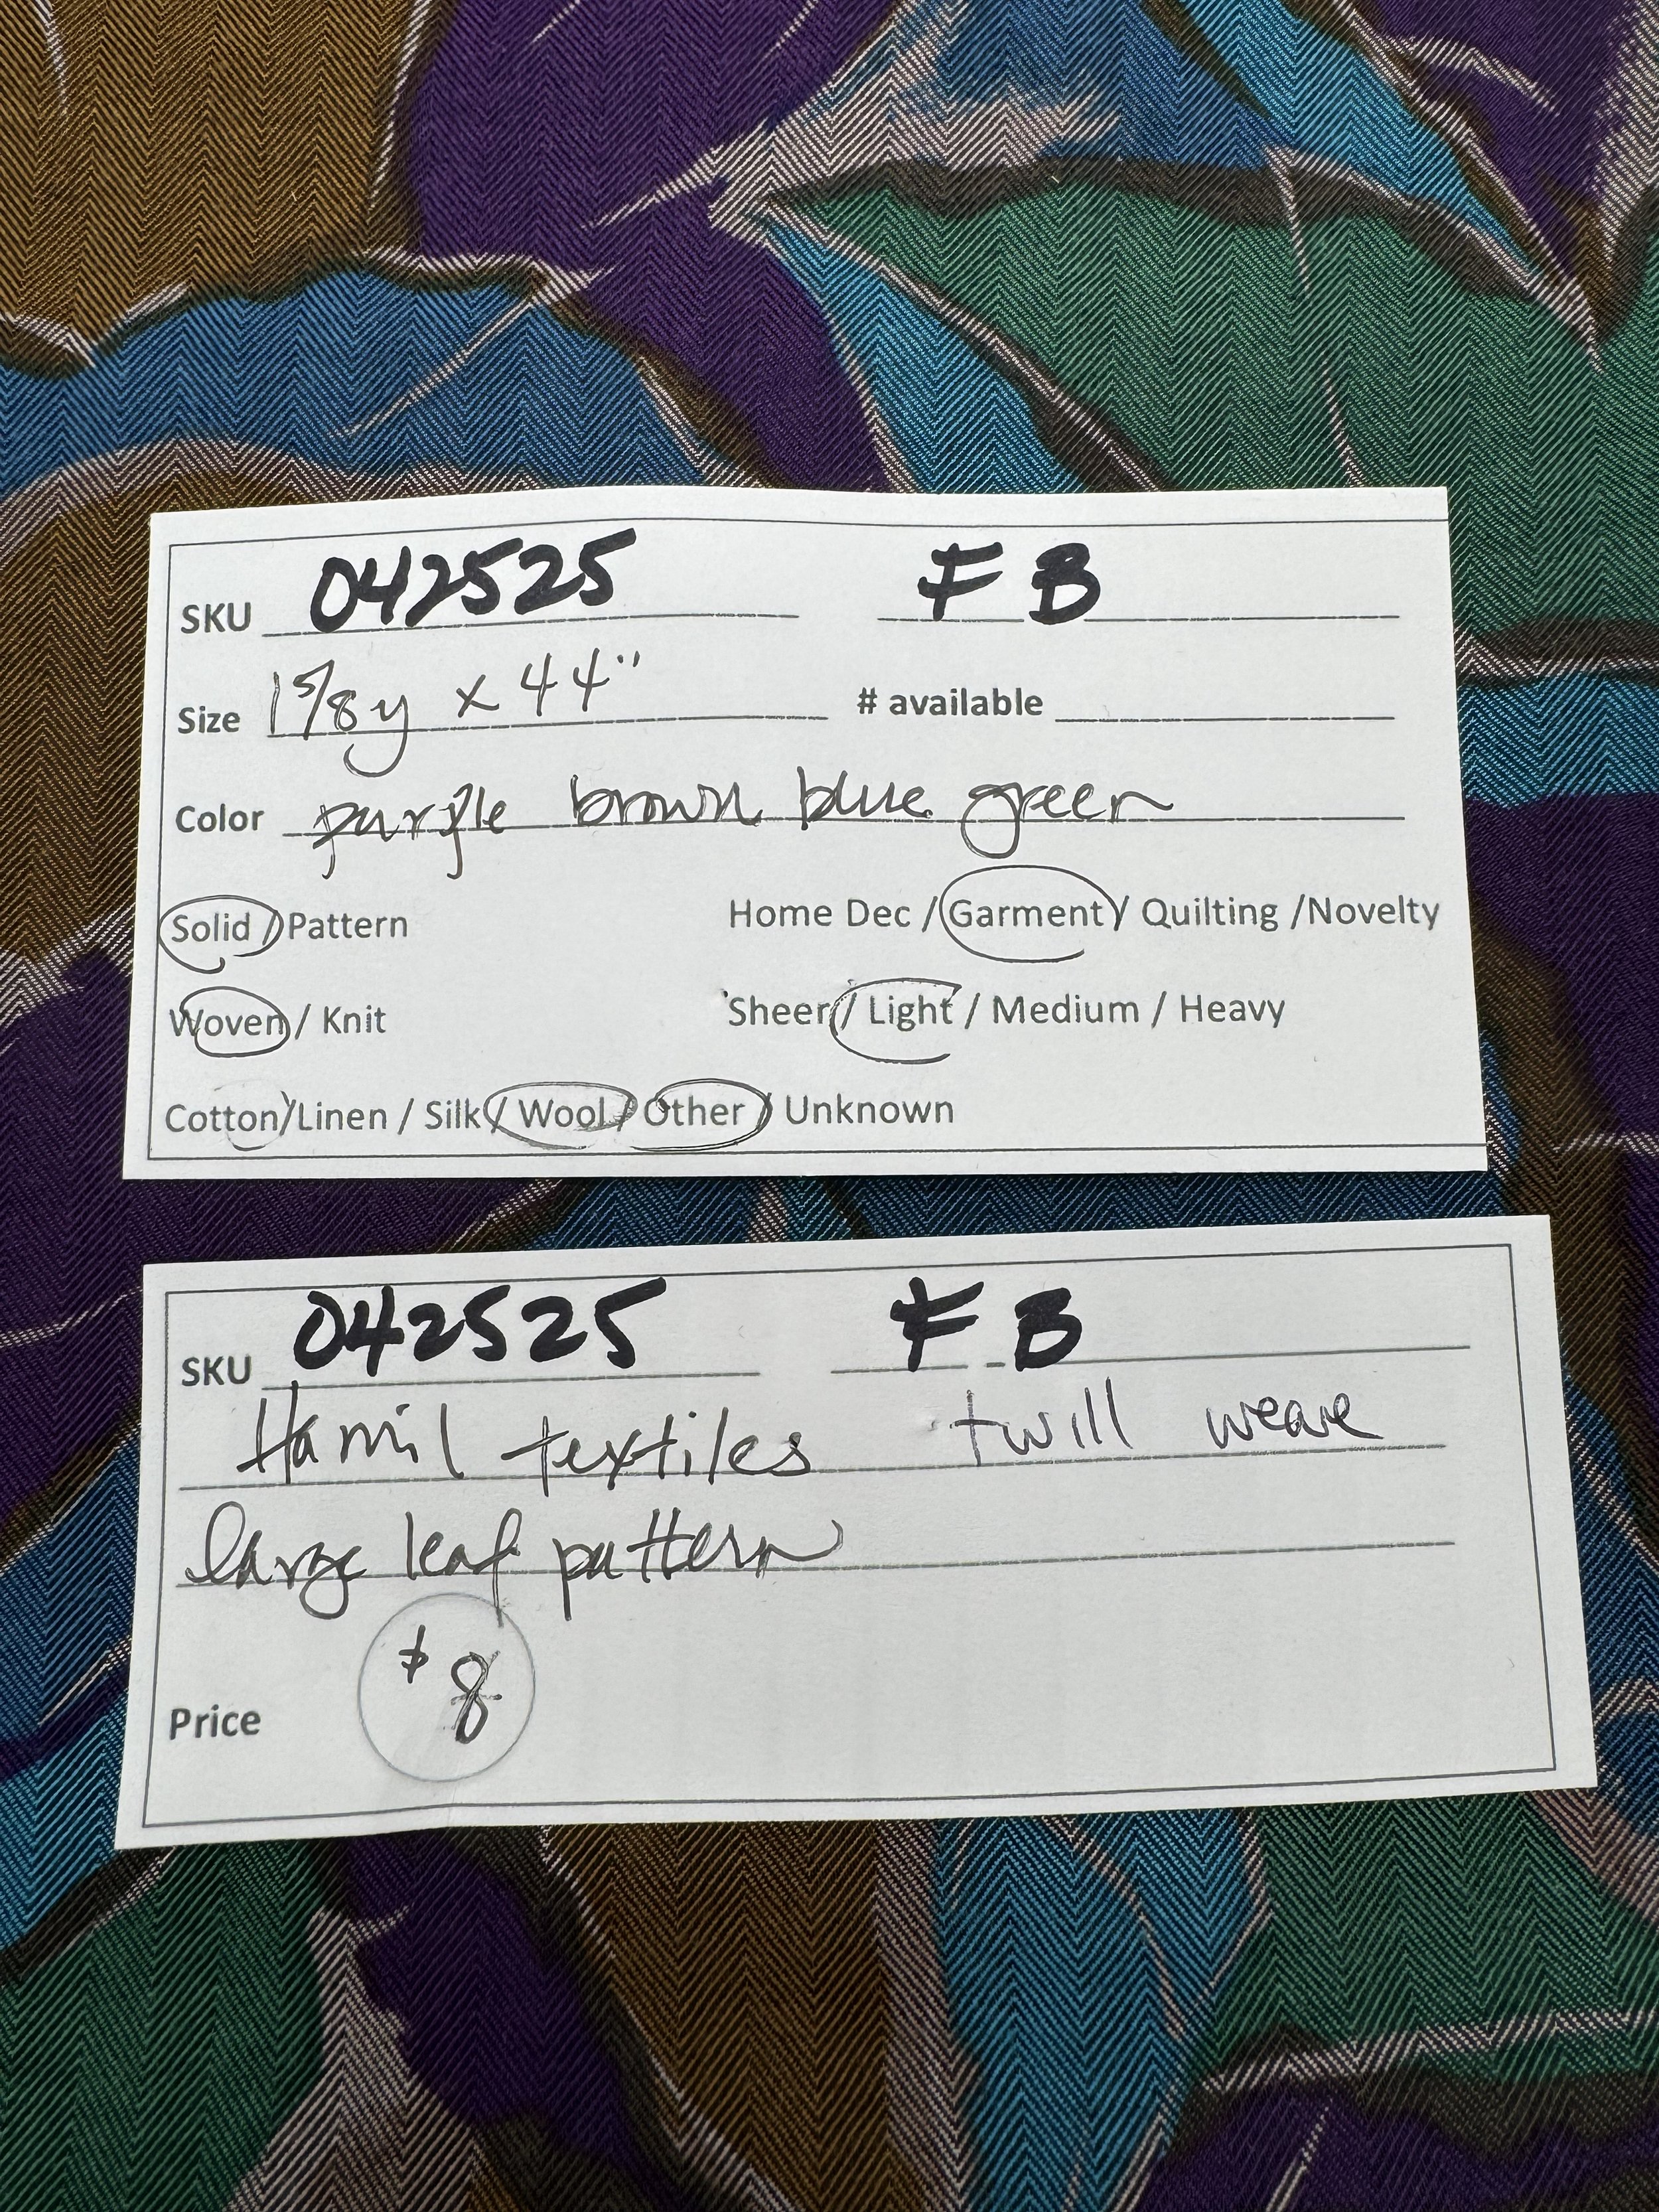 SKU 042525 FB
Size 1 5/8 y x 44" # available
Color purple brown blue green
Solid / Pattern Home Dec / Garment / Quilting / Novelty
Woven / Knit Sheer / Light / Medium / Heavy
Cotton / Linen / Silk / Wool / Other / Unknown
SKU 042525 FB
Hamil textiles twill weave
large leaf pattern
Price $8